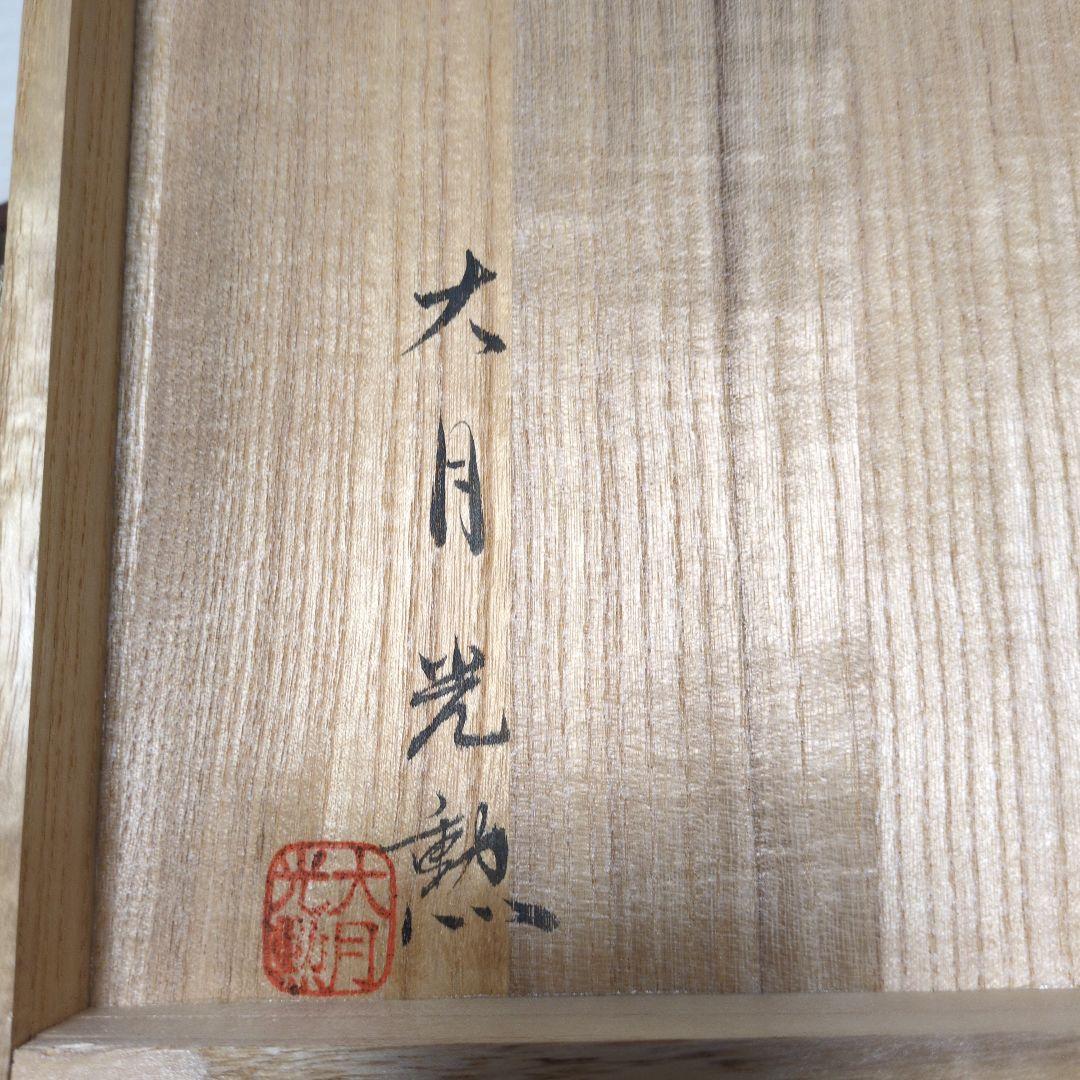 大月光勲
大月
光勲